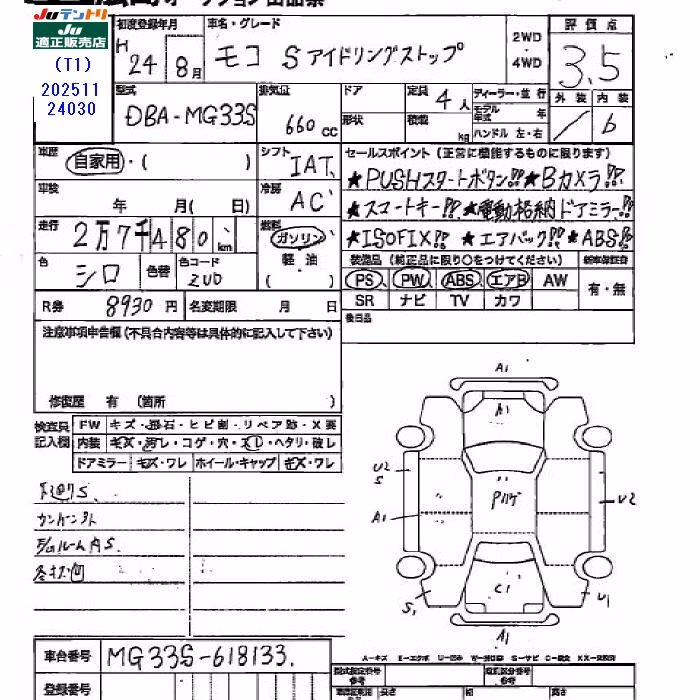 Juテントリ
Ju
適正販売店
(T1)
202511
24030
初度登録年月
H
24年 8月
車名・グレード
モコ Sアイドリングストップ
2WD
・
4WD
評価点
3.5
外装 内装
/ 6
型式
DBA-MG33S
排気量
660 CC
ドア
形状
定員
4人
積載
kg
ディーラー・並行
モデル年式 年
ハンドル 左・右
車歴
自家用・( )
シフト
IAT
車検
年 月( 日)
冷房
AC
走行
2万7千480 km
燃料
ガソリン
軽・油
( )
色
シロ
色替
色コード
ZUD
R券 8930円
名変期限 月 日
セールスポイント (正常に機能するものに限ります)
★PUSHスタートボタン!! ★Bカメラ!!
★スマートキー!! ★電動格納ドアミラー!!
★ISOFIX!! ★エアバック!! ★ABS!!
装備品 (純正品に限り○をつけてください)
新車保証書
PS PW ABS エアB AW
SR ナビ TV カワ
有・無
後日品
注意事項申告欄 (不具合内容等は具体的に記入して下さい)
修復歴 有 (箇所 )
検査員
記入欄
FW キズ・飛石・ヒビ割・リペア跡・X要
内装 キズ・汚レ・コゲ・穴・スレ・ヘタリ・破レ
ドアミラー キズ・ワレ ホイール・キャップ キズ・ワレ
下廻りS
A1
A1
U2
S
A1
U2
C1
S1
U1
A1
車台番号 MG33S-618133
登録番号
型式指定番号
参考
類別区分番号
参考
長さ
幅
高さ